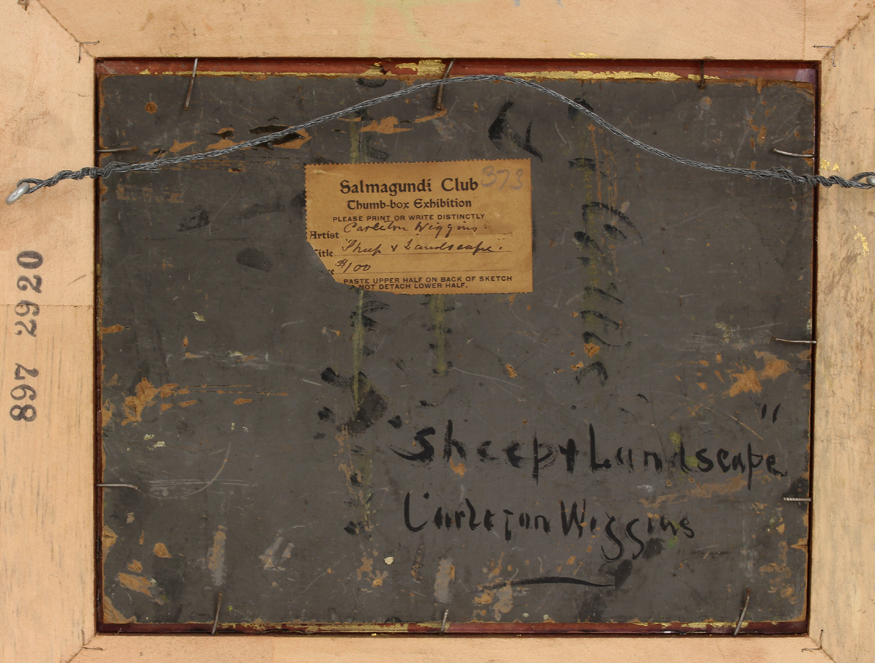 Salmagundi Club 373
Thumb-box Exhibition
PLEASE PRINT OR WRITE DISTINCTLY
Artist Carleton Wiggins.
itle Sheep & Landscape.
e $100
PASTE UPPER HALF ON BACK OF SKETCH
NOT DETACH LOWER HALF.
897 2920
"Sheep & Landscape"
Carleton Wiggins